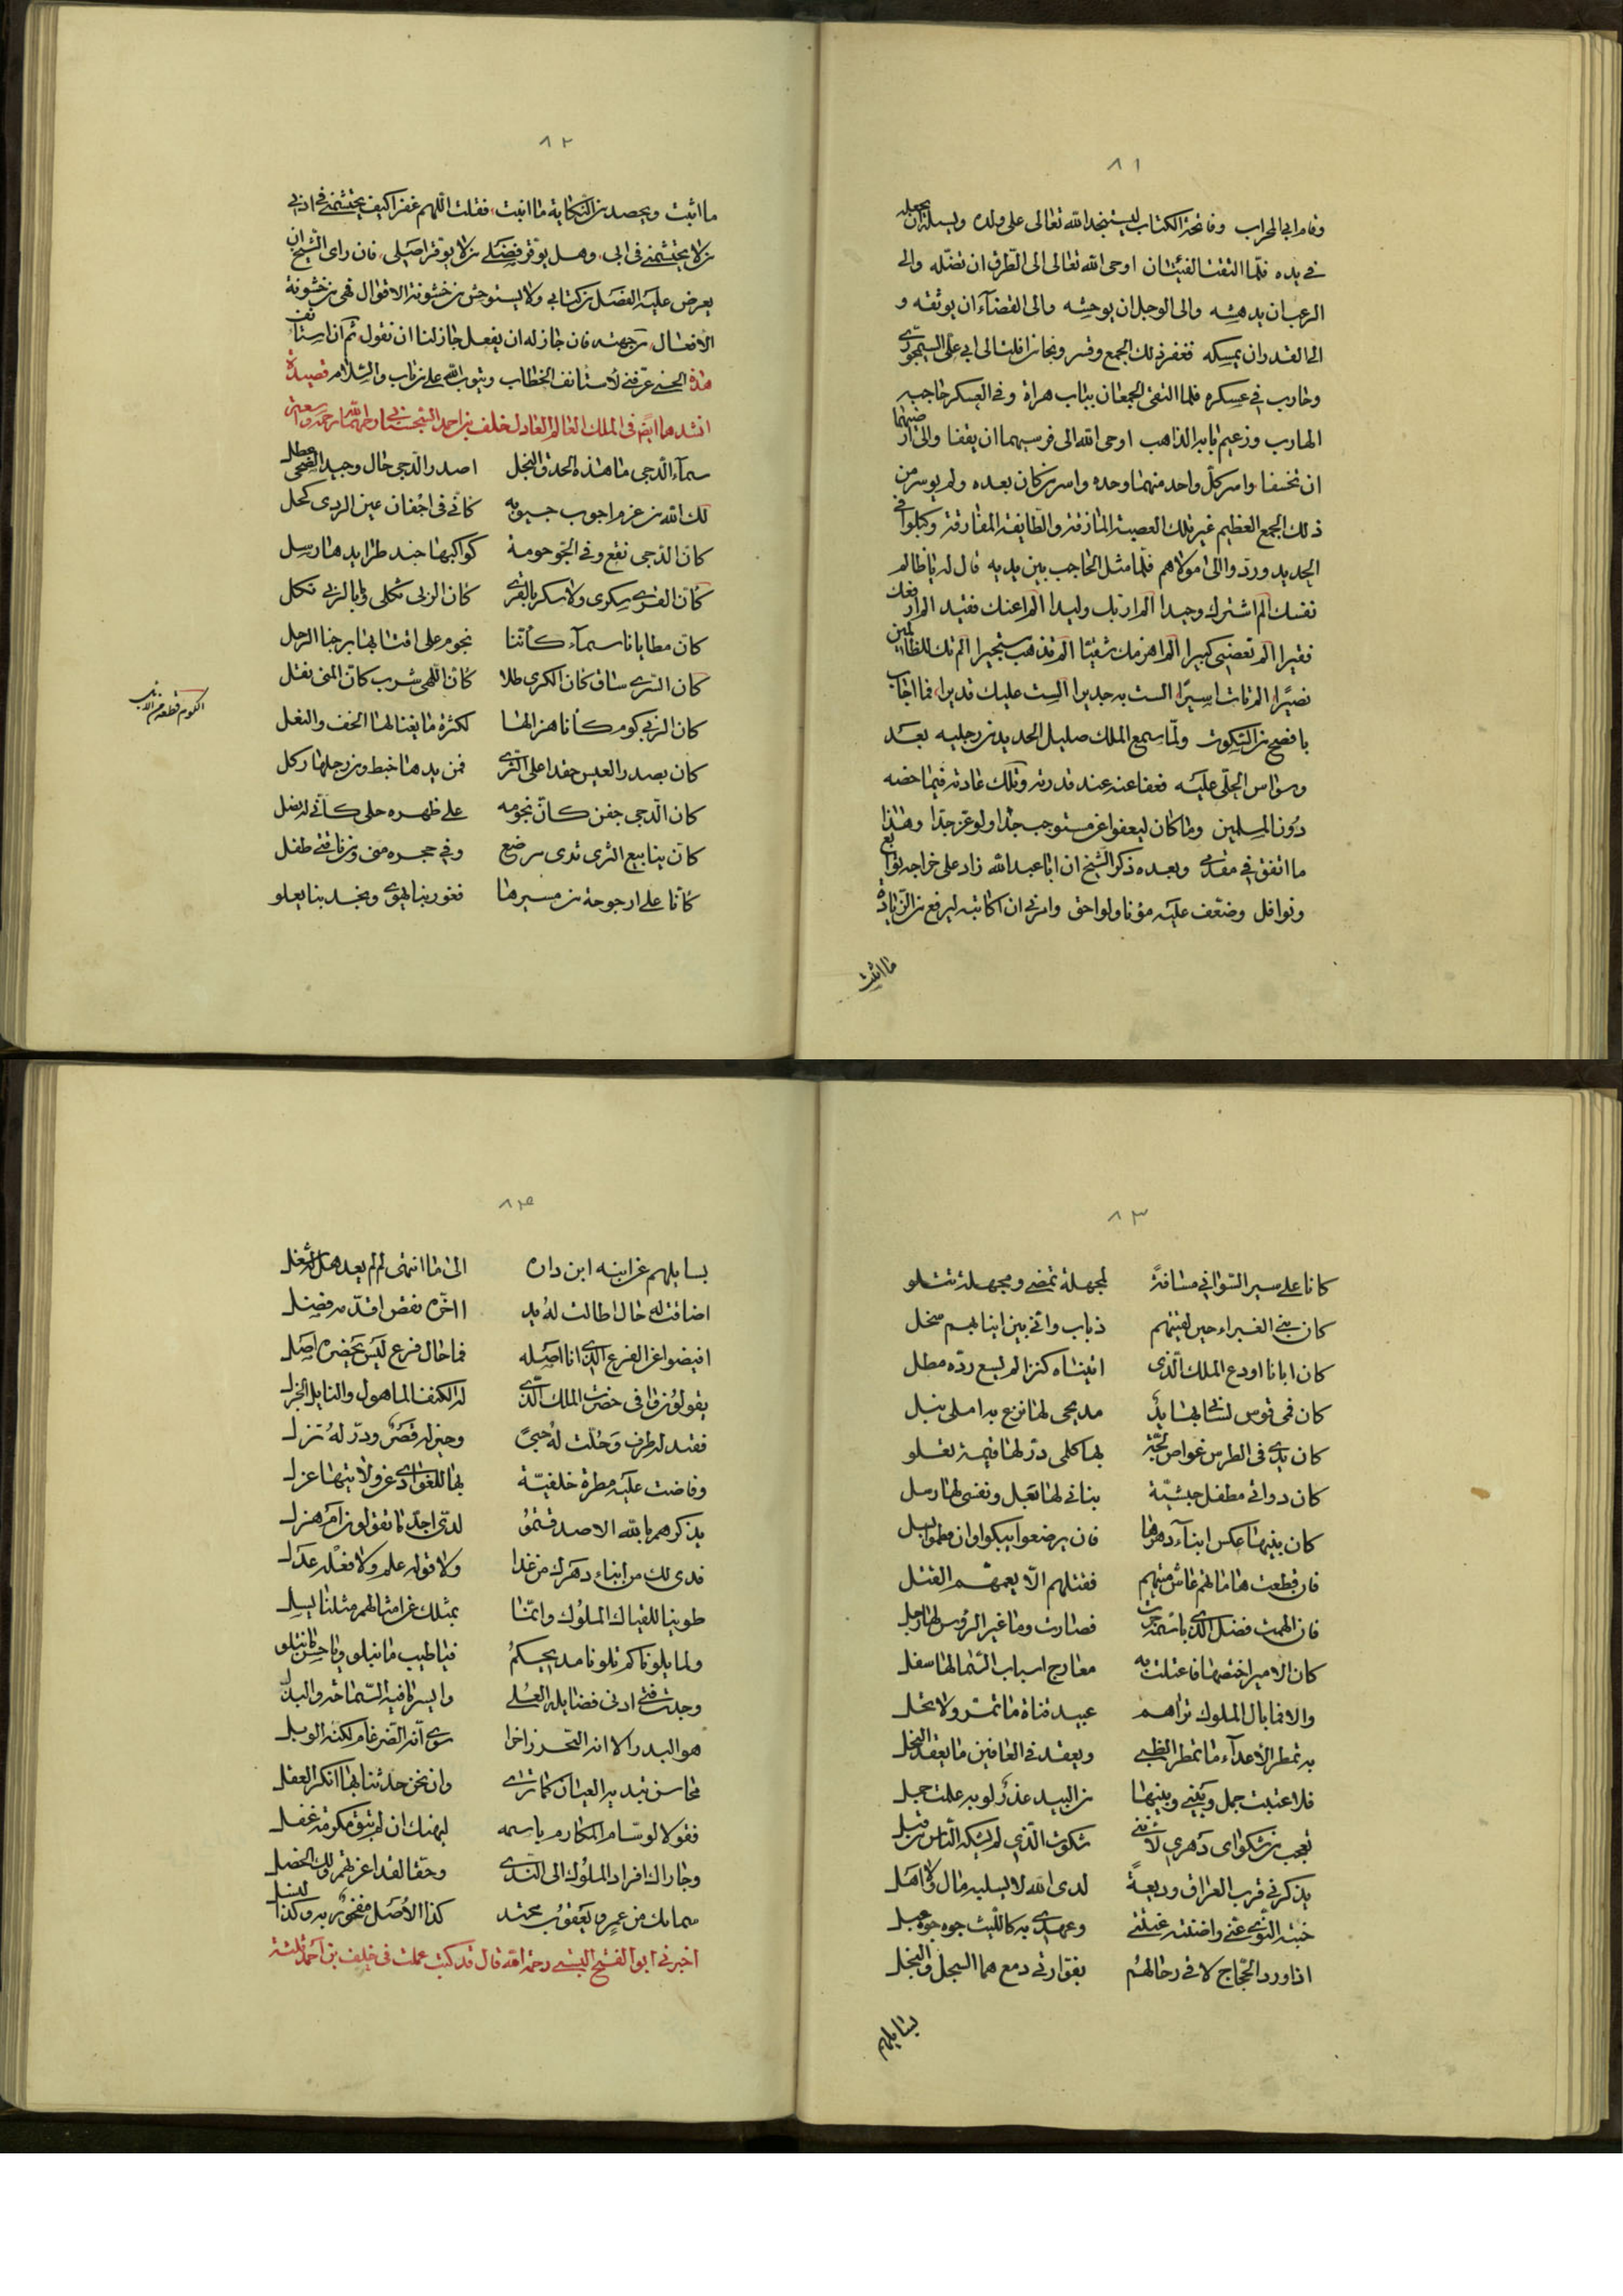 ٨١
وقام ابي المحراب وفاتحة الكتاب ليستنجد الله تعالى على ولده ويسئله ان يجعله
في يده فلما التقت الفئتان اوحى الله تعالى الى الطرف ان تضله والى
الرعب ان يدهشه والى الوجل ان يوحشه والى القضاء ان يوثقه و
الى القدر ان يمسكه فغفر ذلك الجمع وقسر ونجا من افلت الى ابي علي السيمجوري
وحارب في عسكره فلما التقى الجمعان بباب هراة وفي العسكر حاجبه
الهارب وزعيم بابه الذاهب اوحى الله الى فرسيهما ان يقفا والى ارضهما
ان تخسفا واسر كل واحد منهما وحده واسر من كان بعده ولم يوسر من
ذلك الجمع العظيم غير تلك العصبة المازقة والطايفة المفارقة وكبلوا في
الحديد وردوا الى مولاهم فلما مثل الحاجب بين يديه قال له يا ظالم
نفسك الم اشترك وحيدا الم اربك وليدا الم اعنك فقيد الم ارفعك
فقيرا الم تعصني كبيرا الم اهزمك شقيا الم تذهب مستجيرا الم تك للظالمين
نصيرا الم تات اسيرا الست به جديرا الست عليك قديرا فما اجاب
بافصح من السكوت ولما سمع الملك صليل الحديد من رجليه بعد
وسواس الحلي عليه فعفا عنه عند قدرته وتلك عادته فيما خصه
دون المسلمين وما كان ليعفوا عن مستوجب حدا ولو عز جدا وهذا
ما اتفق في مقدمي وبعده ذكر الشيخ ان ابا عبد الله زاد على خراجه توابع
ونوافل وضعف عليه مؤنا ولواحق وامرني ان اكاتبه ليرفع من الزيادة
ما اثبت
٨٢
ما اثبت ويحصد من النكاية ما انبت فقلت اللهم غفرا كيف يحتشمني في اذني
من لا يحتشمني في ابي وهل يوقر فضلي من لا يوقر اصلي فان راى الشيخ ان
يعرض عليه الفصل من كتابي ولا يستوحش من خشونة الاقوال فهي من خشونة
الافعال من جهته فان جاز له ان يفعل جاز لنا ان نقول ثم ان استانف
هذا الحسنى عرفني لاستانف الخطاب ويتوب الله على من تاب والسلام قصيدة
انشدها ايضا في الملك العالم العادل خلف بن احمد السجستاني
سماء الدجى ما هذه الحدق النجل اصدر الدجى حال وجيد الضحى عطل
لك الله من عزم اجوب جيوبه كاني في اجفان عين الردى كحل
كان الدجى نقع وفي الجو حومة كواكبها جند طرايدها رسل
كان القرى سكرى ولا سكر بالقرى كان الربى ثكلى ولا بالربى ثكل
كان مطايانا سماء كاننا نجوم على اقتابها برجنا الرحل
كان السرى ساق كان الكرى طلا كان اللهى شرب كان المنى نقل
كان الربى كوم كانا هزالها لكثرة ما يغتالها الخف والنعل
كان بصدر العيس حقدا على الثرى فمن يدها خبط ومن رجلها ركل
كان الدجى جفن كان نجومه على ظهره حلى كاني له نصل
كان ينابيع الثرى ثدي مرضع وفي حجره مني ومن ناقتي طفل
كانا على ارجوحة من مسيرها فغور بنا يهوي ونجد بنا يعلو
٨٣
كانا على سير السواني مسافة لمجهلة تمضي ومجهلة تتلو
كان بني الغبراء حين لقيتهم ذباب واني بين انيابهم سخل
كان ابانا اودع الملك الذي اتيناه كنزا لم يسع رده مطل
كان فمي قوس لساني بها يد مديحي لها نزع به املي نبل
كان يدي في الطرس غواص لجة بها كلمي در لها قيمة تغلو
كان دواتي مطفل حبشية بناني لها بعل ونقسي لها رسل
كان بنيها عكس ابناء دهرها فان يرضعوا يبكوا وان فطموا يسلو
فان قطعت هاماتهم عاش ميتهم فقتلهم الا يعمهم القتل
فان الهمت فضل الذي باسمه جرت فصارت وما غير الرؤس لها رجل
كان الامير اختصها فاعتلت به معارج اسباب السما لها سفل
والا فما بال الملوك تراهم عبيد قناة ما تمر ولا تحل
به تمطر الاعداء ما تمطر الظبى ويعقد في العافين ما يعقد النحل
فلا عتبت جمل وبيني وبينها من البيد عذر لو به علمت جمل
تعجب من شكواي دهري لانني شكوت الذي لم يشكه الناس من قبل
يذكرني قرب العراق وديعة لدى الله لا يسليه مال ولا اهل
حبته النوى عني واضنته غيبتي وعهدي به كالليث جوجوه عبل
اذا ورد الحجاج لاقى رحالهم بفوارتي دمع هما السجل والنجل
يسايلهم
٨٤
يسايلهم عن ابنه اين داره الى ما انتهى لم لم يعد هل له شغل
اضاقت له حال اطالت له يد ااخره نقص اقدمه فضل
افيضوا عن الفرع الذي انا اصله فما حال فرع ليس يحضره اصل
يقولون وافى حضرة الملك الذي له الكنف الماهول والنايل الجزل
فقيد له طرف وحلت له حبى وخير له قصر ودر له نزل
وفاضت عليه مطرة خلفية بها للغوادي عز ولايتها عزل
يذكرهم بالله الا صدقتم لدي اجد ما تقولون ام هزل
فدى لك من ابناء دهرك من غدا ولا قوله علم ولا فعله عدل
طوينا للقياك الملوك وانما بمثلك عن امثالهم مثلنا يسل
ولما بلوناكم تلونا مديحكم فيا طيب ما نبلو ويا حسن ما نتلو
وجدت فتى ادنى فضايله العلى وايسر ما فيه السماحة والبذل
هو البدر الا انه البحر زاخرا سوى انه الضرغام لكنه الوبل
محاسن يبديها العيان كما ترى وان نحن حدثنا بها انكر العقل
فقولا لوسام المكارم باسمه ليهنك ان لم تبق مكرمة غفل
وجاراك افراد الملوك الى الندى وحقا لقد اعجزتهم ولك الخصل
سما بك من عمرو يعقوب محتد كذا الاصل مفخور به وكذا النسل
اخبرني ابو الفتح البستي رحمة الله قال قد كنت عملت في خلف بن احمد ثلثة